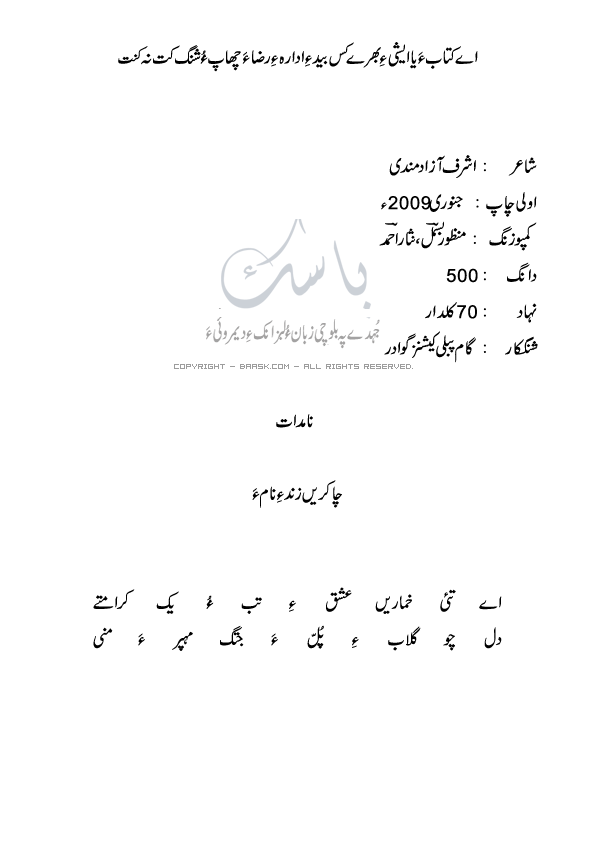 اے کتاب ءَ یا ایشی ءِ بھرے کس بید ءِ ادارہ ءِ رضا ءَ چھاپ ءُ شنگ کت نہ کنت
شاعر : اشرف آزاد مندی
اولی چاپ : جنوری 2009ء
کمپوزنگ : منظور بسمل، نثار احمد
دانگ : 500
نہاد : 70 کلدار
شنگکار : گام پبلی کیشنز گوادر
باسک
جُہدے پہ بلوچی زبان ءُ لبزانک ءِ دیمروئی ءَ
COPYRIGHT - BAASK.COM - ALL RIGHTS RESERVED.
نامدات
چاکریں زند ءِ نام ءَ
اے تئی خماریں عشق ءِ تب ءُ یک کرامتے
دل چو گلاب ءِ پُلّ ءَ جتگ مہپر ءَ منی